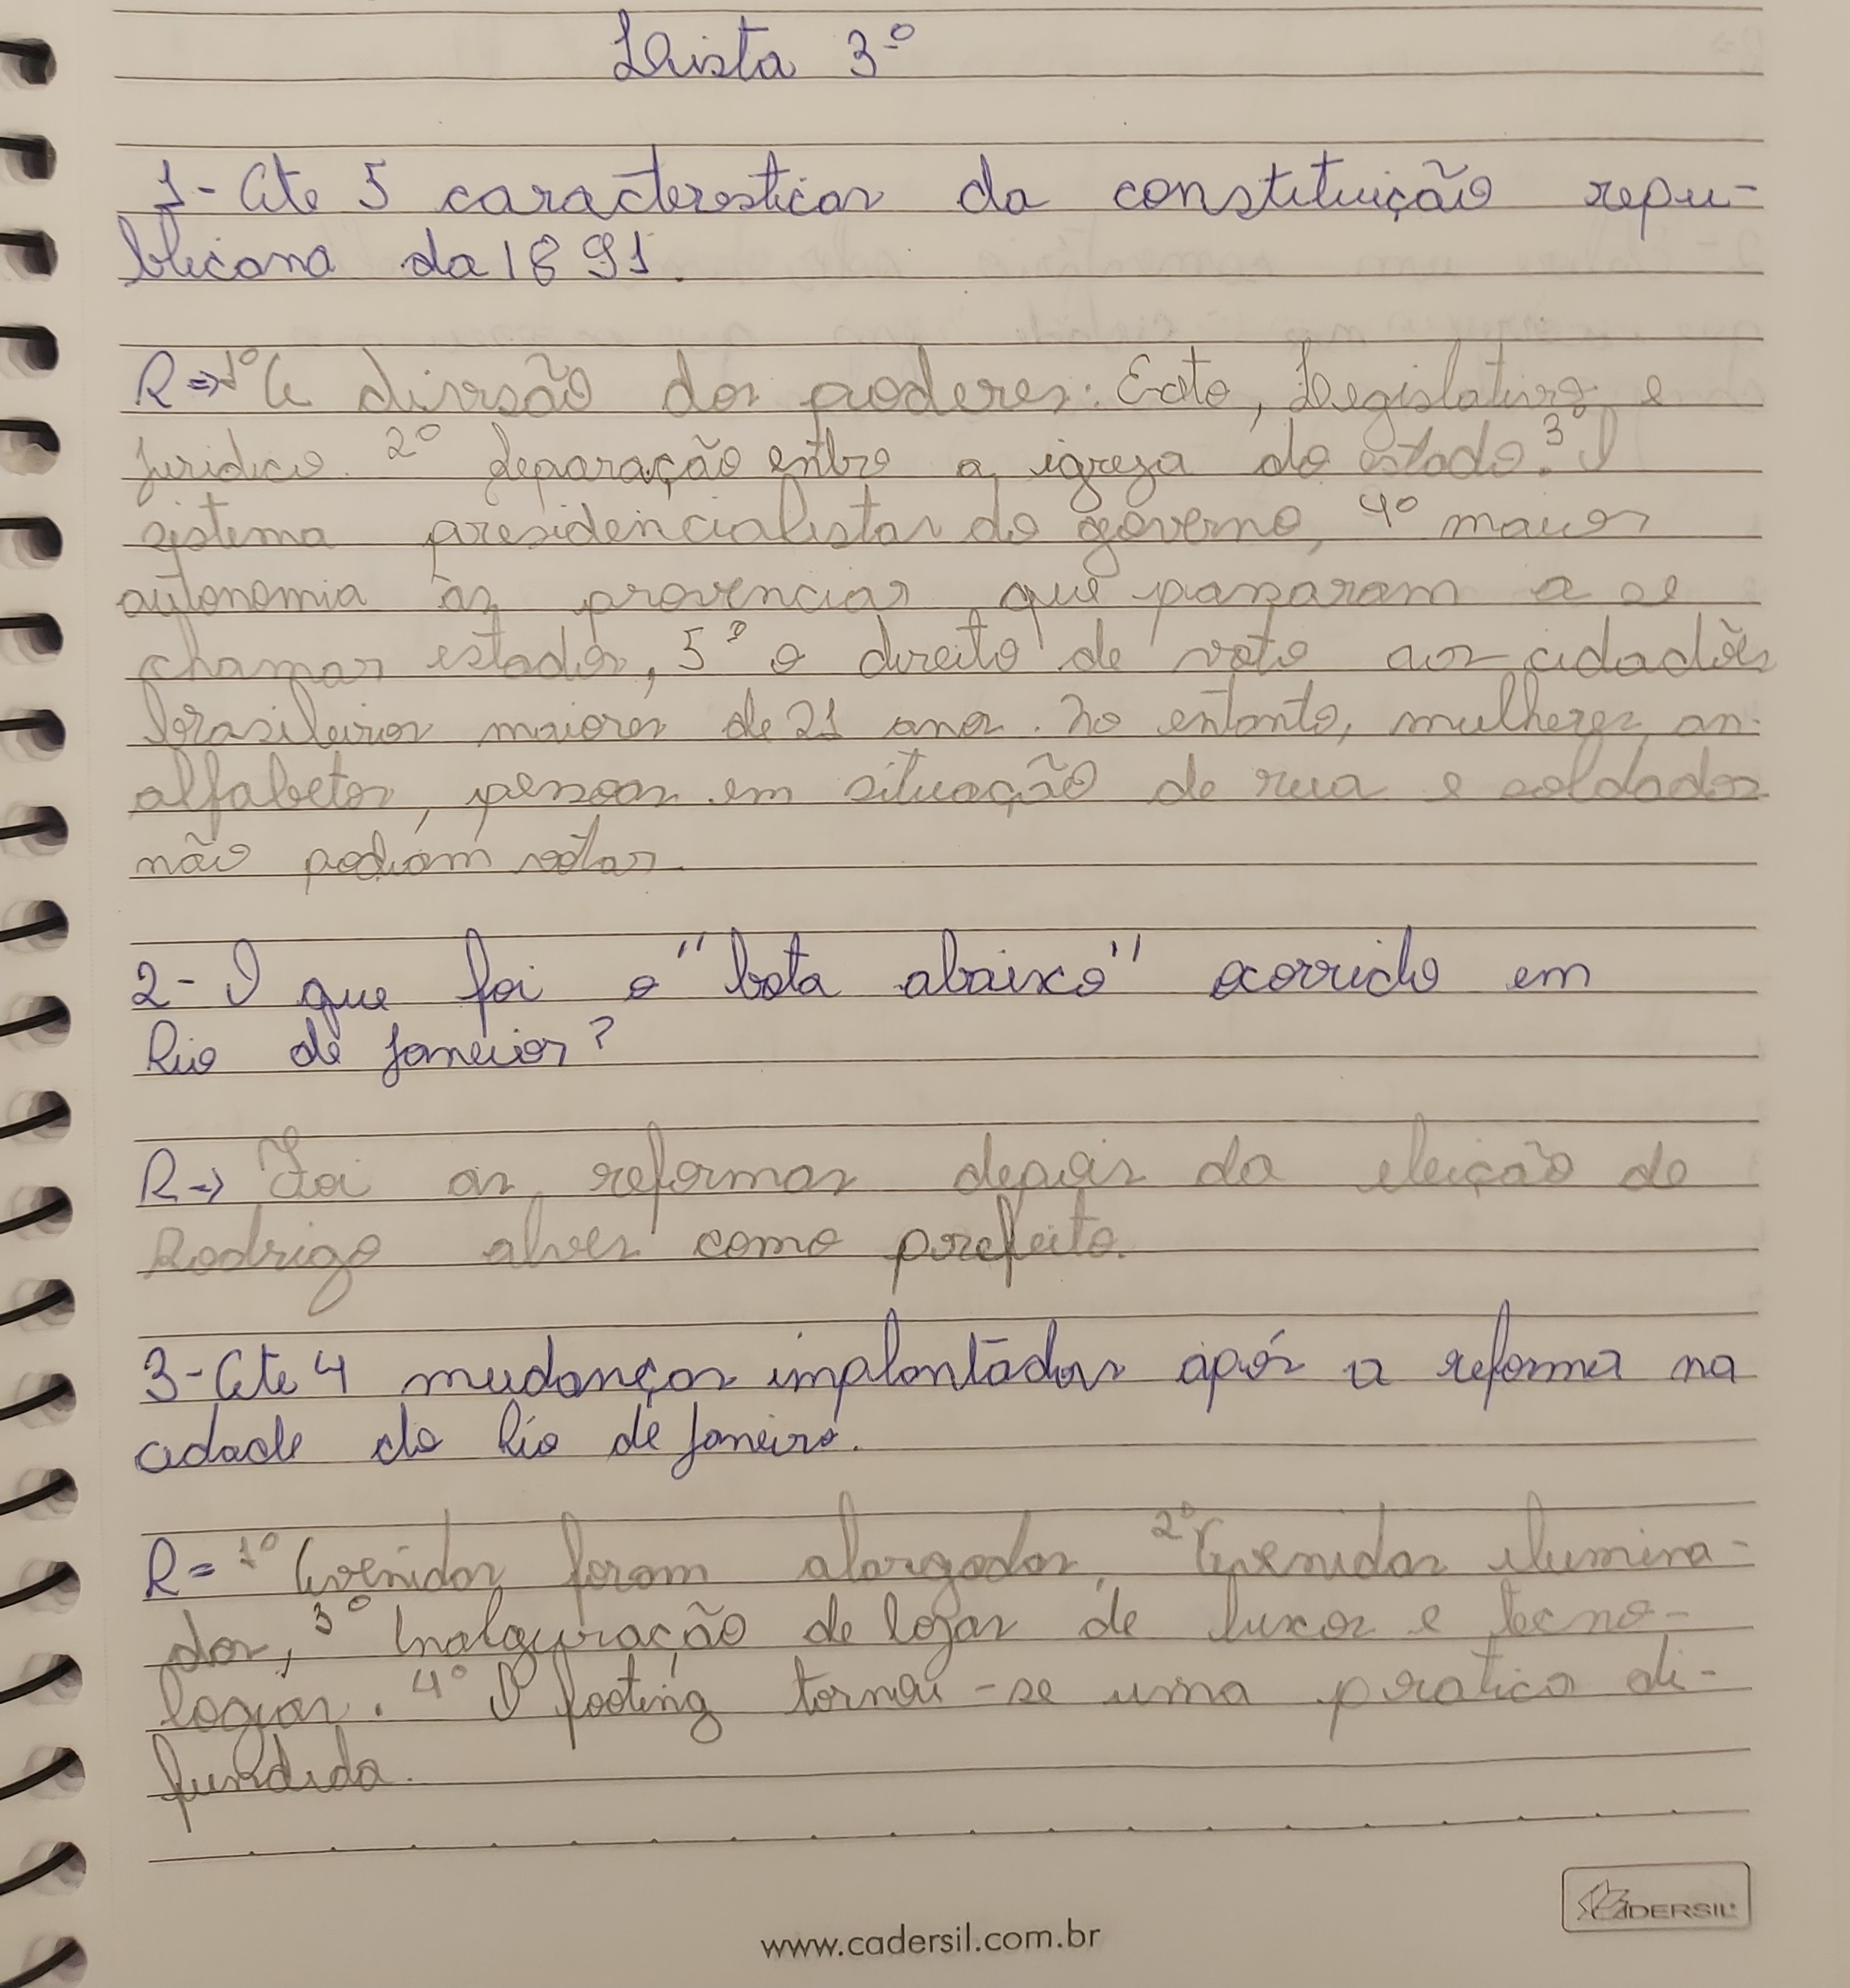 Lista 3º
1- Cite 5 caracteresticas da constituição repu-
blicana da 1891.
R⇒ 1º A divisão dos poderes: Exto, Legislativo e
Juridico. 2º Separação entre a igreja do estado. 3º O
sistema presidencialistas do governo, 4º maior
autonomia às provencias que passaram a se
chamar estados, 5º o direito de voto aos cidadões
brasileiros maiores de 21 anos. No entanto, mulheres, an-
alfabetos, pessoas em situação de rua e soldados
não podiam votar.
2- O que foi o "bota abaixo" ocorrido em
Rio de Janeior?
R→ Foi as reformas depois da eleição de
Rodrigo alves como prefeito.
3- Cite 4 mudanças implantadas após a reforma na
cidade do Rio de Janeiro.
R= 1º Avenidas foram alargadas, 2º Avenidas ilumina-
das, 3º Inalguração de lojas de luxos e tecno-
logias. 4º O footing tornou-se uma pratica di-
fundida.
CADERSIL
www.cadersil.com.br